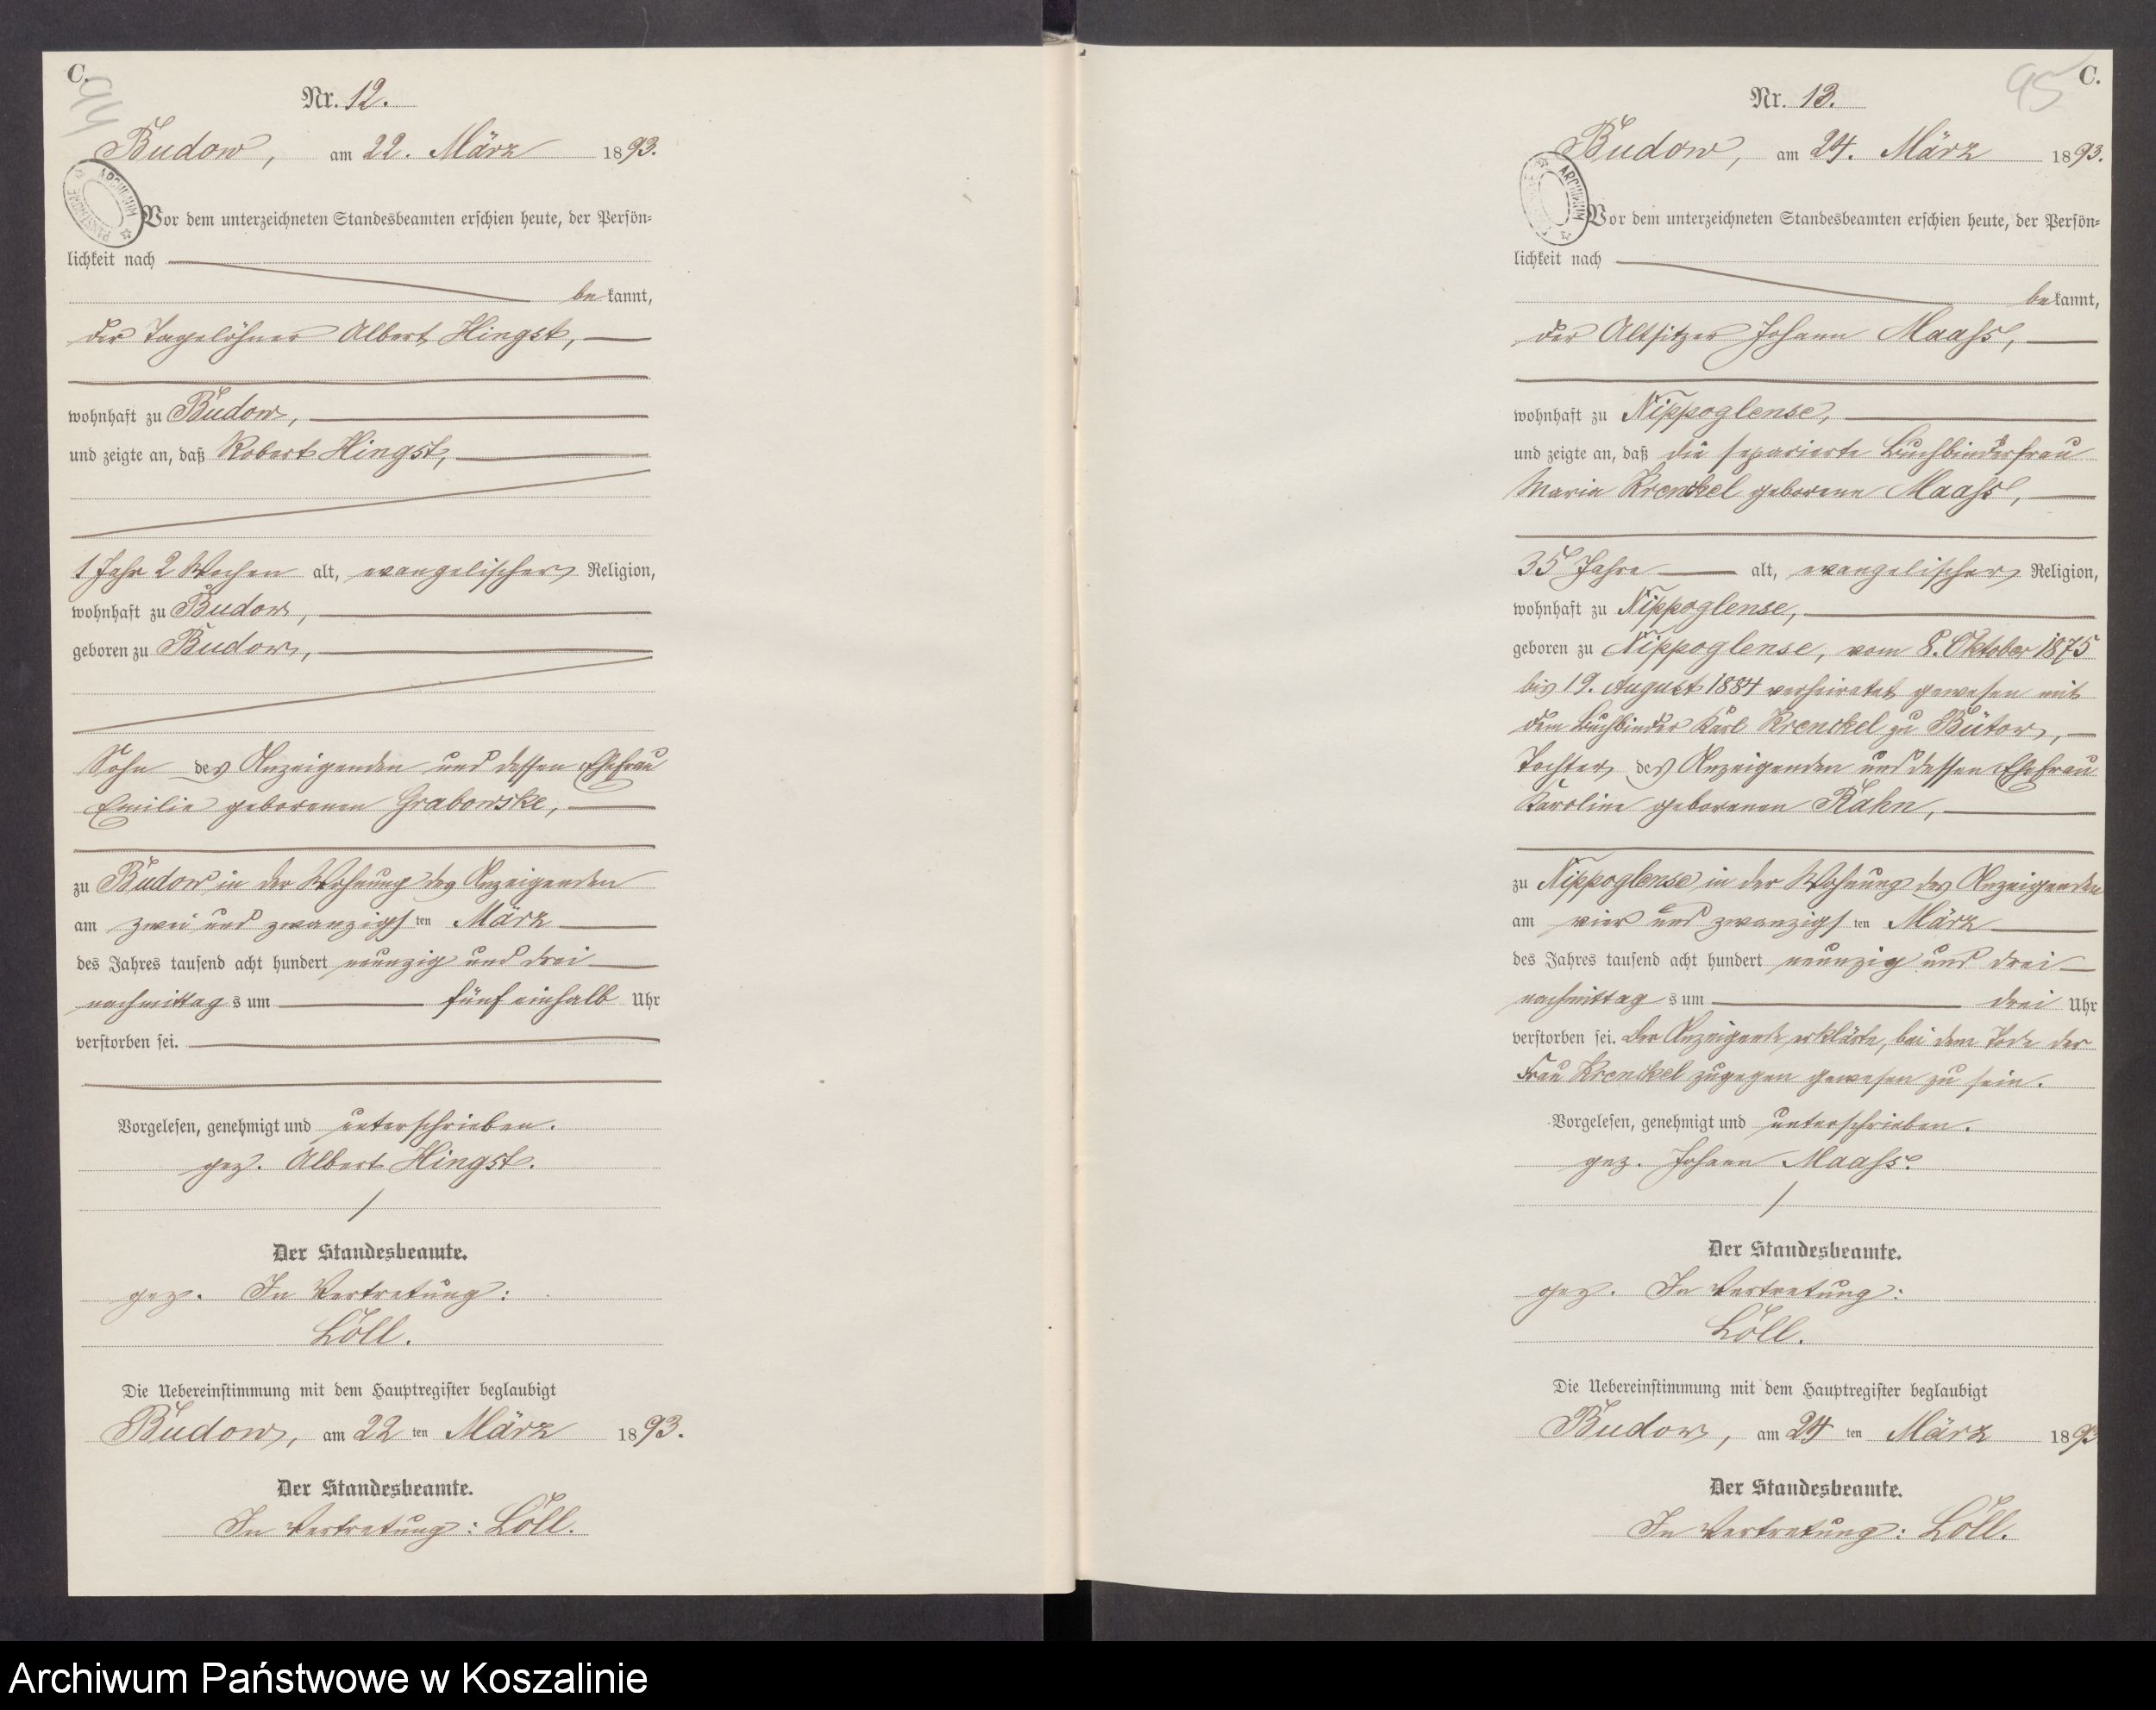 C.
94
Nr. 12.
Budow, am 22. März 1893.
Vor dem unterzeichneten Standesbeamten erschien heute, der Persön=
lichkeit nach
bekannt,
der Tagelöhner Albert Hingst,
wohnhaft zu Budow,
und zeigte an, daß Robert Hingst,
1 Jahr 2 Wochen alt, evangelischer Religion,
wohnhaft zu Budow,
geboren zu Budow,
Sohn des Anzeigenden und dessen Ehefrau
Emilie geborenen Grabowske,
zu Budow in der Wohnung des Anzeigenden
am zwei und zwanzigsten März
des Jahres tausend acht hundert neunzig und drei
nachmittags um fünf einhalb Uhr
verstorben sei.
Vorgelesen, genehmigt und unterschrieben.
gez. Albert Hingst.
Der Standesbeamte.
gez. In Vertretung:
Löll.
Die Uebereinstimmung mit dem Hauptregister beglaubigt
Budow, am 22ten März 1893.
Der Standesbeamte.
In Vertretung: Löll.
95
C.
Nr. 13.
Budow, am 24. März 1893.
ARCHIWUM
Vor dem unterzeichneten Standesbeamten erschien heute, der Persön=
lichkeit nach
bekannt,
der Altsitzer Johann Maaß,
wohnhaft zu Nippoglense,
und zeigte an, daß die separierte Buchbinderfrau
Maria Krenckel geborene Maaß,
35 Jahre alt, evangelischer Religion,
wohnhaft zu Nippoglense,
geboren zu Nippoglense, vom 8. Oktober 1875
bis 19. August 1884 verheiratet gewesen mit
dem Buchbinder Karl Krenckel zu Bütow,
Tochter des Anzeigenden und dessen Ehefrau
Karoline geborenen Rahn,
zu Nippoglense in der Wohnung des Anzeigenden
am vier und zwanzigsten März
des Jahres tausend acht hundert neunzig und drei
nachmittags um drei Uhr
verstorben sei. Der Anzeigende erklärte, bei dem Tode der
Frau Krenckel zugegen gewesen zu sein.
Vorgelesen, genehmigt und unterschrieben.
gez. Johann Maaß.
Der Standesbeamte.
gez. In Vertretung:
Löll.
Die Uebereinstimmung mit dem Hauptregister beglaubigt
Budow, am 24ten März 1893
Der Standesbeamte.
In Vertretung: Löll.
Archiwum Państwowe w Koszalinie